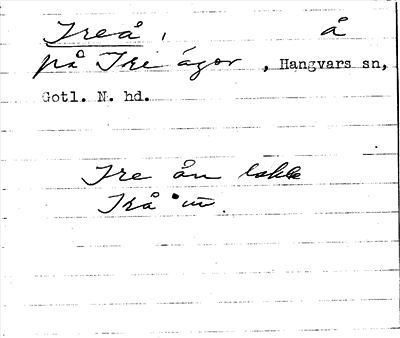 Ireå, å
på Ire ägor, Hangvars sn,
Gotl. N. hd.
Ire ån
Irå